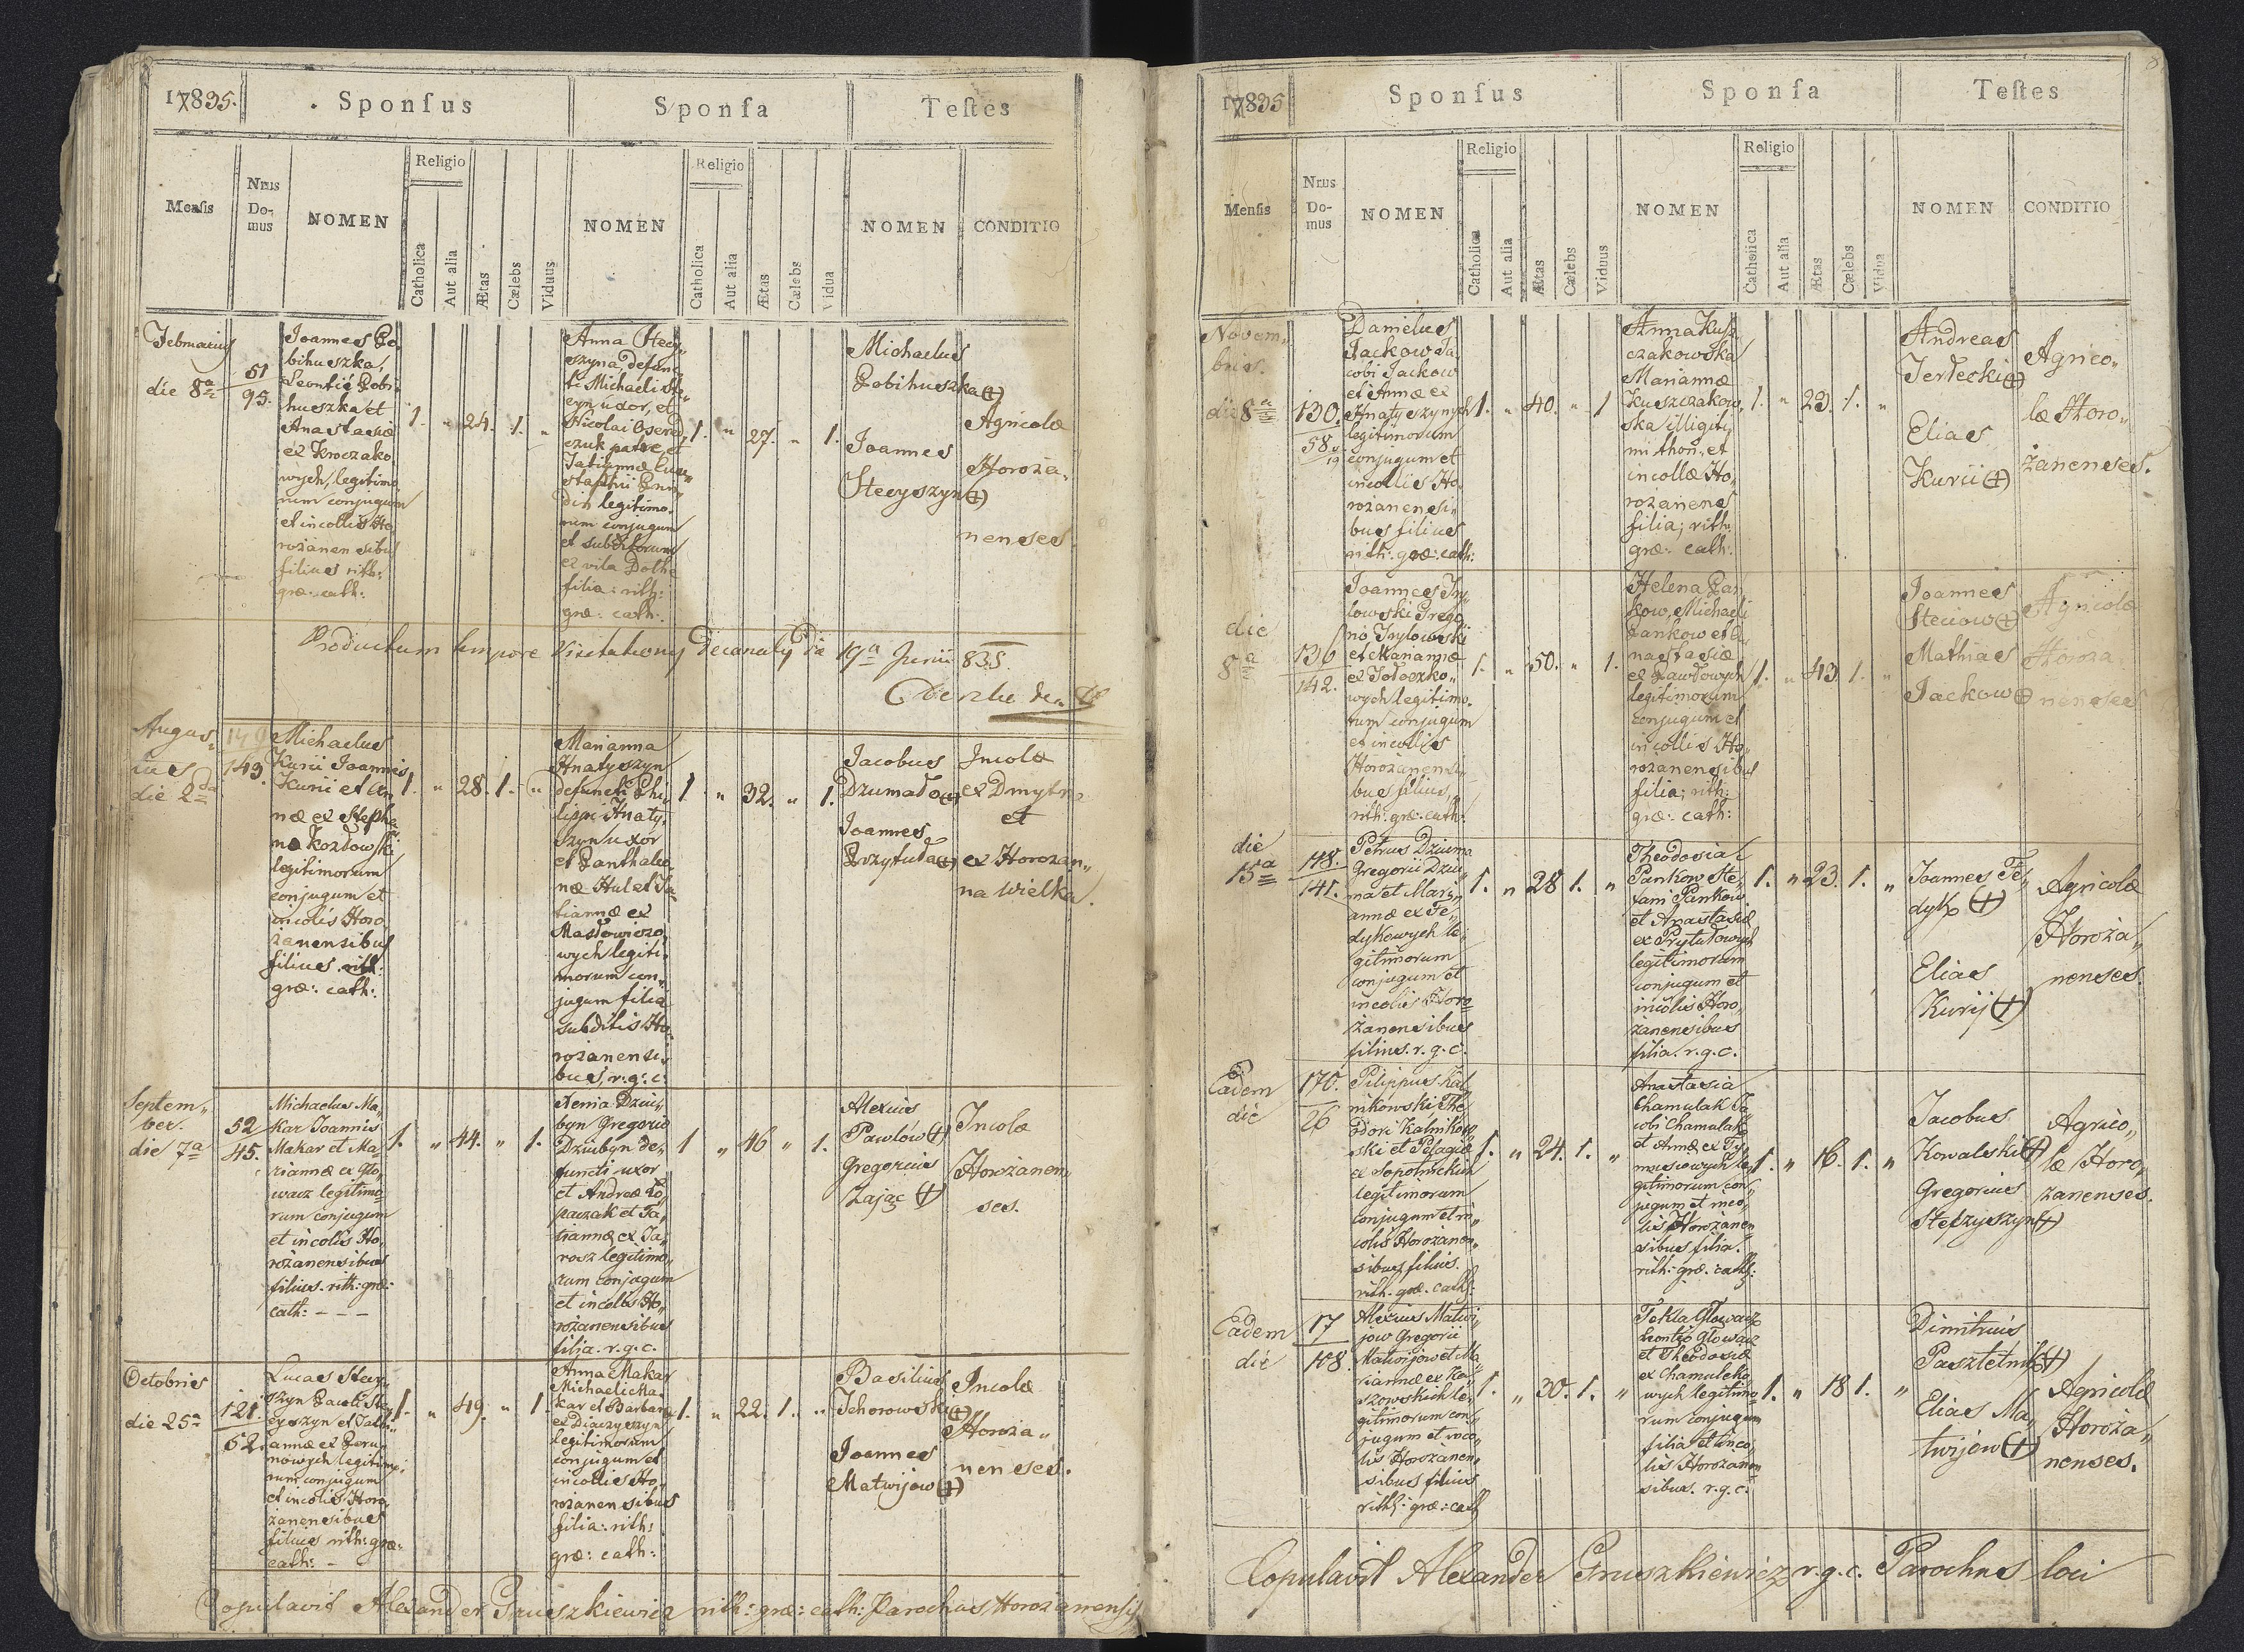 17835.
Sponſus
Sponſa
Teſtes
Menſis
Nrus
Do-
mus
NOMEN
Religio
Catholica
Aut alia
Ætas
Cælebs
Viduus
NOMEN
Religio
Catholica
Aut alia
Ætas
Cælebs
Vidua
NOMEN
CONDITIO
Februarius
die 8a
51
95.
Joannes
bihuszka,
Leontii
huszka et
Anastasiæ
ex Kroczako
wych, legitimo
rum conjugum
et incollis Ho
rożanensibus
filius rith:
græ: cath:
1. " 24. 1. "
Anna Stecy
szyna, defunc
ti Michaeli Ste
cyn uxor, et
Nicolai
czuk patre, et
legitimo
rum conjugum
et subditorum
ex vila
filia: rith:
græ: cath:
1. " 27. " 1.
Michaelus
Joannes
Stecyszyn (+)
Agricolæ
Horoża-
nenses
Productum tempore Visitationis Decanalis die 19a Junii 835.
Augus
tus
die 2da
149
143.
Michaelus
Kurii Joannis
Kurii et An
næ ex Stepha
no Kozłowski
legitimorum
conjugum et
incolis Horo
żanensibus
filius rith:
græ: cath:
1. " 28. 1. "
Marianna
Hnatyszyn
defuncti Phi
lippi Hnaty
szyn uxor
et Panthaleo
næ Hul et Ta
tiannæ ex
Masłowiczo
wych legiti
morum con
jugum filia
subditis Ho
rożanensi
bus, r. g. c.
1 " 32. " 1.
Jacobus
Dzumało (+)
Joannes
Przytuła (+)
Incolæ
ex Dmytrze
et
ex Horożan
na Wielka.
Septem
ber.
die 7a
52
45.
Michaelus Ma
kar Joannis
Makar et Ma
riannæ ex Gło
wacz legitimo
rum conjugum
et incolis Ho
rożanensibus
filius. rith: græ:
cath: - - -
1. " 44. " 1.
Xenia Dziu
byn Gregorio
Dziubyn de
functi uxor
et Andreæ Ło
paczak et Ta
tiannæ ex Ja
rosz legitimo
rum conjugum
et incolis Ho
rożanensibus
filia. r. g. c.
1 " 46 " 1.
Alexius
Pawlów (+)
Gregorius
Zając (+)
Incolæ
Horożanen
ses.
Octobris
die 25a
121.
52.
Lucas Stecy
szyn Pauli Ste
cyszyn et Tati
annæ ex
nowych legitimo
rum conjugum
et incolis Horo
żanensibus
filius rith: græ:
cath: -
1. " 49. " 1.
Anna Makar
Michaeli Ma
kar et Barbaræ
ex Diaczyszyn
legitimorum
conjugum et
incollis Ho
rożanensibus
filia: rith:
græ: cath:
1. " 22. 1. "
Basilius
Joannes
Matwijow (+)
Incolæ
Horoża
nenses.
Copulavit Alexander Gruszkiewicz rith: græ: cath: Parochus Horożanensis
17835
Sponſus
Sponſa
Teſtes
Menſis
Nrus
Do-
mus
NOMEN
Religio
Catholica
Aut alia
Ætas
Cælebs
Viduus
NOMEN
Religio
Catholica
Aut alia
Ætas
Cælebs
Vidua
NOMEN
CONDITIO
Novem
bris.
die 8a
130.
58.
19
Danielus
Jackow Ja
cobi Jackow
et Annæ ex
Hnatyszynych
legitimorum
conjugum et
incollis Ho
rożanensi
bus filius
rith: græ: cath:
1. " 40. " 1
Anna Kusz
czakowska
Mariannæ
Kuszczakow
ska illigiti
mi thori, et
incollæ Ho
rożanens
filia, rith:
græ: cath:
1. " 23. 1. "
Andreas
Elias
Kurii (+)
Agrico
læ Horo
żanenses.
die
8a
136
142.
Joannes Iry
lowski Grego
rio Irylowski
et Mariannæ
wych legitimo
rum conjugum
et incollis
Horożanensi
bus filius,
rith: græ: cath:
1. " 50. " 1.
Helena Pan
kow, Michaeli
Pankow et A
nastasiæ
ex Pawłowych
legitimorum
conjugum et
incollis Ho
rożanensibus
filia; rith:
græ: cath:
1. " 43 1. "
Joannes
Steciow (+)
Mathias
Jackow (+)
Agricolæ
Horoża
nenses
die
15a
118.
141.
Petrus Dziuma
Gregorii Dziu
ma et Mari
annæ ex Fe
dykowych le
gitimorum
conjugum et
incolis Horo
żanensibus
filius. r. g. c.
1. " 28 1. "
Theodosia
Pankow Ste
fani Pankow
et Anastasiæ
ex Prytułowych
legitimorum
conjugum et
incolis Horo
żanensibus
filia. r. g. c.
1. " 23. 1. "
Joannes Fe
dyk (+)
Elias
Kurij (+)
Agricolæ
Horoża
nenses.
Eadem
die
170.
26
Pilippus Kal
nikowski, The
odori Kalnikow
ski et Pelagiæ
ex Sopotnickich
legitimorum
conjugum et in
colis Horożanen
sibus filius.
rith. græ. cath:
1. " 24. 1. "
Anastasia
Chamulak Ja
cobi Chamulak
et Annæ ex Ty
musiowych le
gitimorum con
jugum et inco
lis Horożanen
sibus filia.
rith: græ. cath:
1. " 16. 1. "
Jacobus
Kowalski (+)
Gregorius
Stefzyszyn (+)
Agrico
læ Horo
żanenses.
Eadem
die
17
108.
Alexius Matwi
jow Gregorii
Matwijow et Ma
riannæ ex Ka
szowskich le
gitimorum con
jugum et inco
lis Horożanen
sibus filius
rith: græ: cath
1. " 30. 1. "
Tekla Głowacz
Leontio Głowacz
et Theodosiæ
ex Chamulako
wych legitimo
rum conjugum
filia et inco
lis Horożanen
sibus. r. g. c.
1. " 18 1. "
Dimitrius
Pasztetnik (+)
Elias Ma
twijow (+)
Agricolæ
Horoża
nenses.
Copulavit Alexander Gruszkiewicz r. g. c. Parochus loci